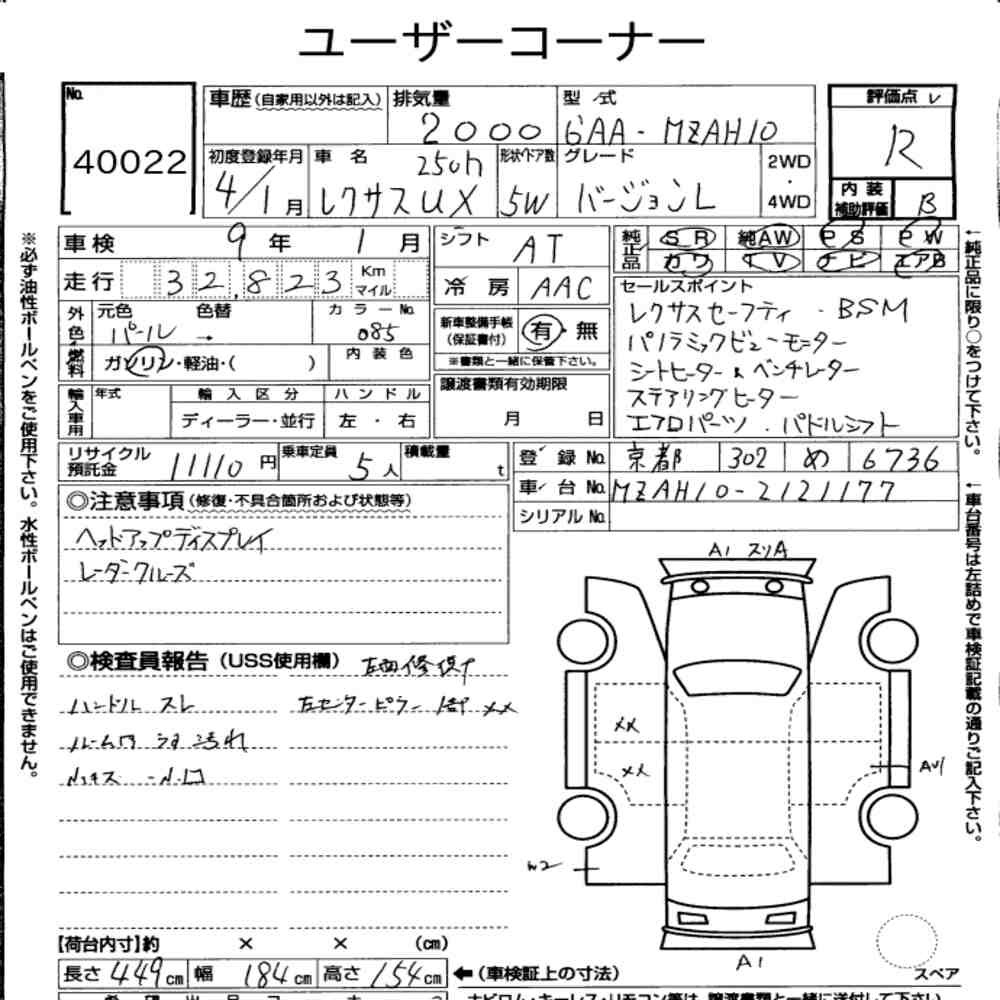 ユーザーコーナー
No. 40022
車歴(自家用以外は記入)
排気量 2000
型式 6AA-MZAH10
評価点 R
内装補助評価 B
初度登録年月 4/1月
車名 レクサスUX 250h
形状・ドア数 5W
グレード バージョンL
2WD・4WD
車検 9年 1月
シフト AT
純正品 SR 純AW PS PW
カワ TV ナビ エアB
走行 32,823 Km マイル
冷房 AAC
セールスポイント
レクサスセーフティ・BSM
パノラミックビューモニター
シートヒーター&ベンチレーター
ステアリングヒーター
エアロパーツ.パドルシフト
外色 元色 パール → 色替
カラーNo. 085
新車整備手帳(保証書付) 有・無
※書類と一緒に保管下さい。
燃料 ガソリン・軽油・( )
内装色
譲渡書類有効期限
月 日
輸入車用 年式
輸入区分 ディーラー・並行
ハンドル 左・右
リサイクル預託金 11110円
乗車定員 5人
積載量 t
登録No. 京都 302 め 6736
車台No. MZAH10-2121177
シリアルNo.
◎注意事項(修復・不具合箇所および状態等)
ヘッドアップディスプレイ
レーダークルーズ
◎検査員報告(USS使用欄)
ハンドル スレ
左センターピラー XX
A1
XX
XX
W2
A1
スペア
【荷台内寸】約 × × (cm)
長さ 449cm 幅 184cm 高さ 154cm
←(車検証上の寸法)
※必ず油性ボールペンをご使用下さい。水性ボールペンはご使用できません。
←純正品に限り○をつけて下さい。
←車台番号は左詰めで車検証記載の通りご記入下さい。